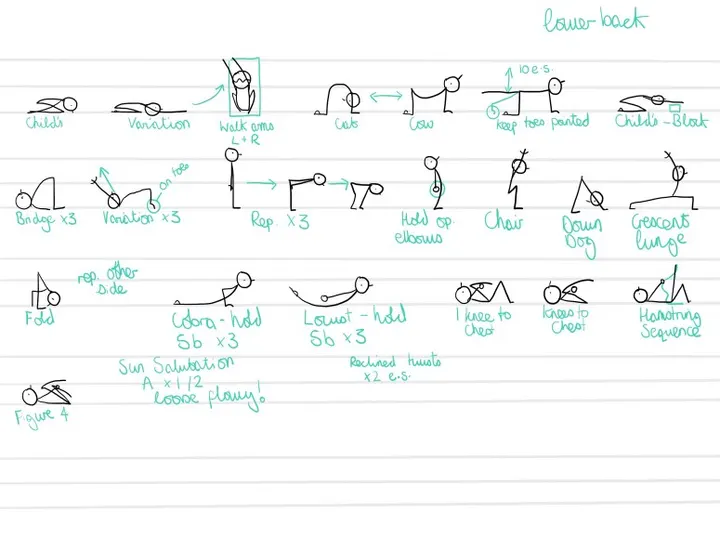 lower back
10 e.s.
Child's
Variation
Walk arms
L + R
Cats
Cow
keep toes pointed
Child's - Block
on toes
Bridge x3
Variation x3
Rep. x3
Hold op.
elbows
Chair
Down
Dog
Crescent
lunge
rep. other
side
Fold
Cobra - hold
5b x3
Locust - hold
5b x3
1 knee to
Chest
Knees to
Chest
Hamstring
Sequence
Sun Salutation
A x 1/2
loose flowy!
Reclined twists
x2 e.s.
Figure 4